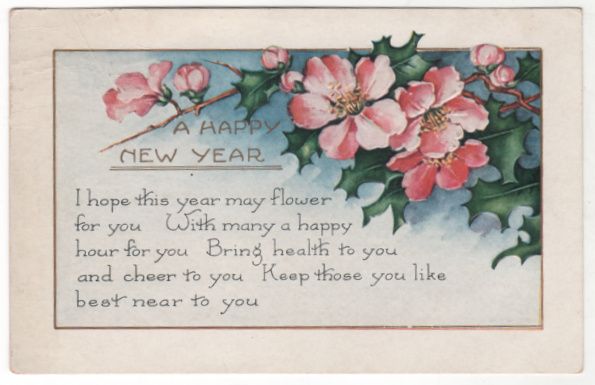 A HAPPY
NEW YEAR
I hope this year may flower
for you With many a happy
hour for you Bring health to you
and cheer to you Keep those you like
best near to you